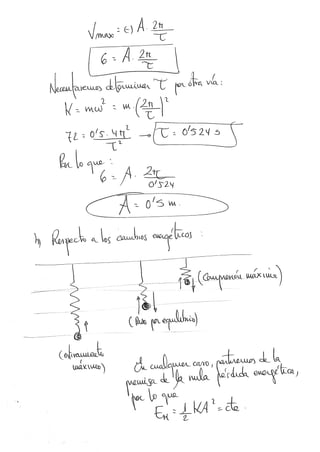 Vmax = (-) A · 2π/τ
6 = A · 2π/τ
Necesitaremos determinar τ por otra vía:
K = mω² = m · (2π/τ)²
72 = 0'5 · 4π²/τ² → τ = 0'524 s
Por lo que:
6 = A · 2π/0'524
A = 0'5 m.
b) Respecto a los cambios energéticos:
(Compresión máxima)
(Paso por equilibrio)
(estiramiento
máximo)
En cualquier caso, partiremos de la
premisa de la nula pérdida energética,
por lo que
E = 1/2 KA² = cte.